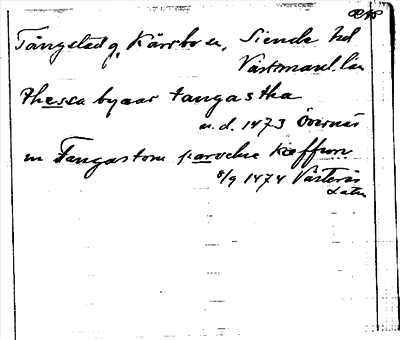 RNP
Tångstad g, Kärrbo sn, Siende hd
Västmanl. län
thessa byaar tangastha
u.d. 1473 Övernäs
in Tangastom parochie kieffwn
8/9 1474 Västerås
Latin